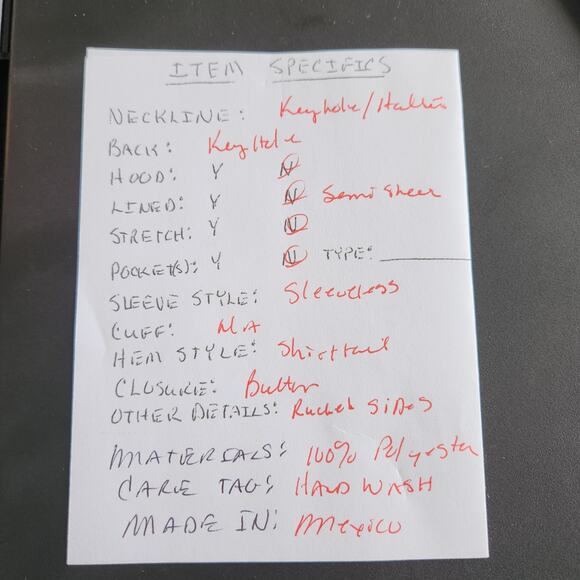 ITEM SPECIFICS
NECKLINE: Keyhole/Halter
BACK: Keyhole
HOOD: Y N
LINED: Y N Semi Sheer
STRETCH: Y N
POCKET(S): Y N TYPE:
SLEEVE STYLE: Sleeveless
CUFF: N/A
HEM STYLE: Shirttail
CLOSURE: Button
OTHER DETAILS: Ruched Sides
MATERIALS: 100% Polyester
CARE TAG: HAND WASH
MADE IN: Mexico